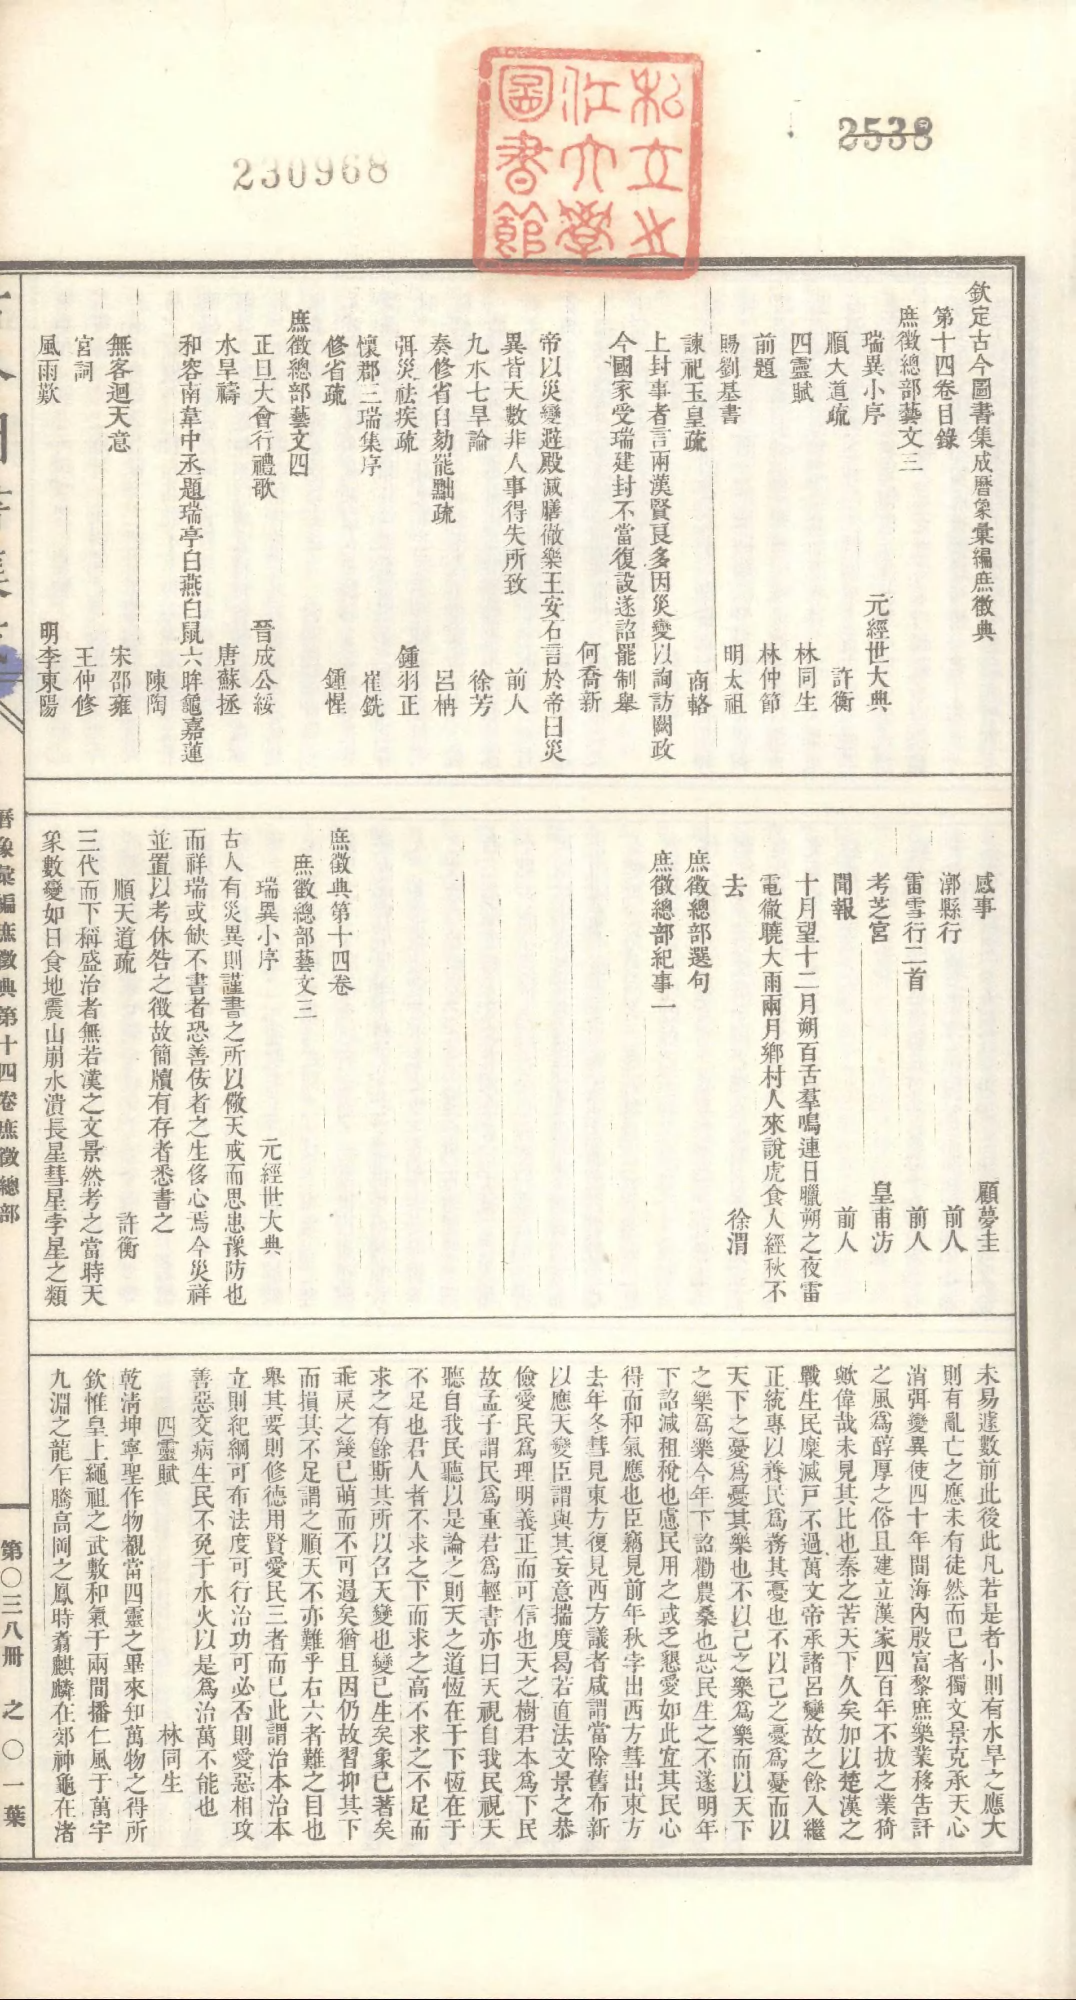 230968
2538
私立之江大學圖書館
欽定古今圖書集成曆象彙編庶徵典
第十四卷目錄
庶徵總部藝文三
瑞異小序 元經世大典
順大道疏 許衡
四靈賦 林同生
前題 林仲節
賜劉基書 明太祖
諫祀玉皇疏 商輅
上封事者言兩漢賢良多因災變以詢訪闕政
今國家受瑞建封不當復設遂詔罷制舉
何喬新
帝以災變避殿減膳徹樂王安石言於帝曰災
異皆天數非人事得失所致 前人
九水七旱論 徐芳
奏修省自劾罷黜疏 呂柟
弭災祛疾疏 鍾羽正
懷郡三瑞集序 崔銑
修省疏 鍾惺
庶徵總部藝文四
正旦大會行禮歌 晉成公綏
水旱禱 唐蘇拯
和容南韋中丞題瑞亭白燕白鼠六眸龜嘉蓮
陳陶
無客迴天意 宋邵雍
宮詞 王仲修
風雨歎 明李東陽
感事 顧夢圭
漷縣行 前人
雷雪行二首 前人
考芝宮 皇甫汸
聞報 前人
十月望十二月朔百舌羣鳴連日臘朔之夜雷
電徹曉大雨兩月鄉村人來說虎食人經秋不
去 徐渭
庶徵總部選句
庶徵總部紀事一
庶徵典第十四卷
庶徵總部藝文三
瑞異小序 元經世大典
古人有災異則謹書之所以儆天戒而思患豫防也
而祥瑞或缺不書者恐善佞者之生侈心焉今災祥
並置以考休咎之徵故簡牘有存者悉書之
順天道疏 許衡
三代而下稱盛治者無若漢之文景然考之當時天
象數變如日食地震山崩水潰長星彗星孛星之類
未易遽數前此後此凡若是者小則有水旱之應大
則有亂亡之應未有徒然而已者獨文景克承天心
消弭變異使四十年間海內殷富黎庶樂業移告訐
之風為醇厚之俗且建立漢家四百年不拔之業猗
歟偉哉未見其比也秦之苦天下久矣加以楚漢之
戰生民糜滅戸不過萬文帝承諸呂變故之餘入繼
正統專以養民為務其憂也不以己之憂為憂而以
天下之憂為憂其樂也不以己之樂為樂而以天下
之樂為樂今年下詔勸農桑也恐民生之不遂明年
下詔減租稅也慮民用之或乏懇愛如此宜其民心
得而和氣應也臣竊見前年秋孛出西方彗出東方
去年冬彗見東方復見西方議者咸謂當除舊布新
以應天變臣謂與其妄意揣度曷若直法文景之恭
儉愛民為理明義正而可信也天之樹君本為下民
故孟子謂民為重君為輕書亦曰天視自我民視天
聽自我民聽以是論之則天之道恆在于下恆在于
不足也君人者不求之下而求之高不求之不足而
求之有餘斯其所以召天變也變已生矣象已著矣
乖戾之幾已萌而不可遏矣猶且因仍故習抑其下
而損其不足謂之順天不亦難乎右六者難之目也
舉其要則修德用賢愛民三者而已此謂治本治本
立則紀綱可布法度可行治功可必否則愛惡相攻
善惡交病生民不免于水火以是為治萬不能也
四靈賦 林同生
乾清坤寧聖作物覩當四靈之畢來知萬物之得所
欽惟皇上繩祖之武敷和氣于兩間播仁風于萬宇
九淵之龍乍騰高岡之鳳時翥麒麟在郊神龜在渚
曆象彙編庶徵典第十四卷庶徵總部
第〇三八冊 之〇一葉